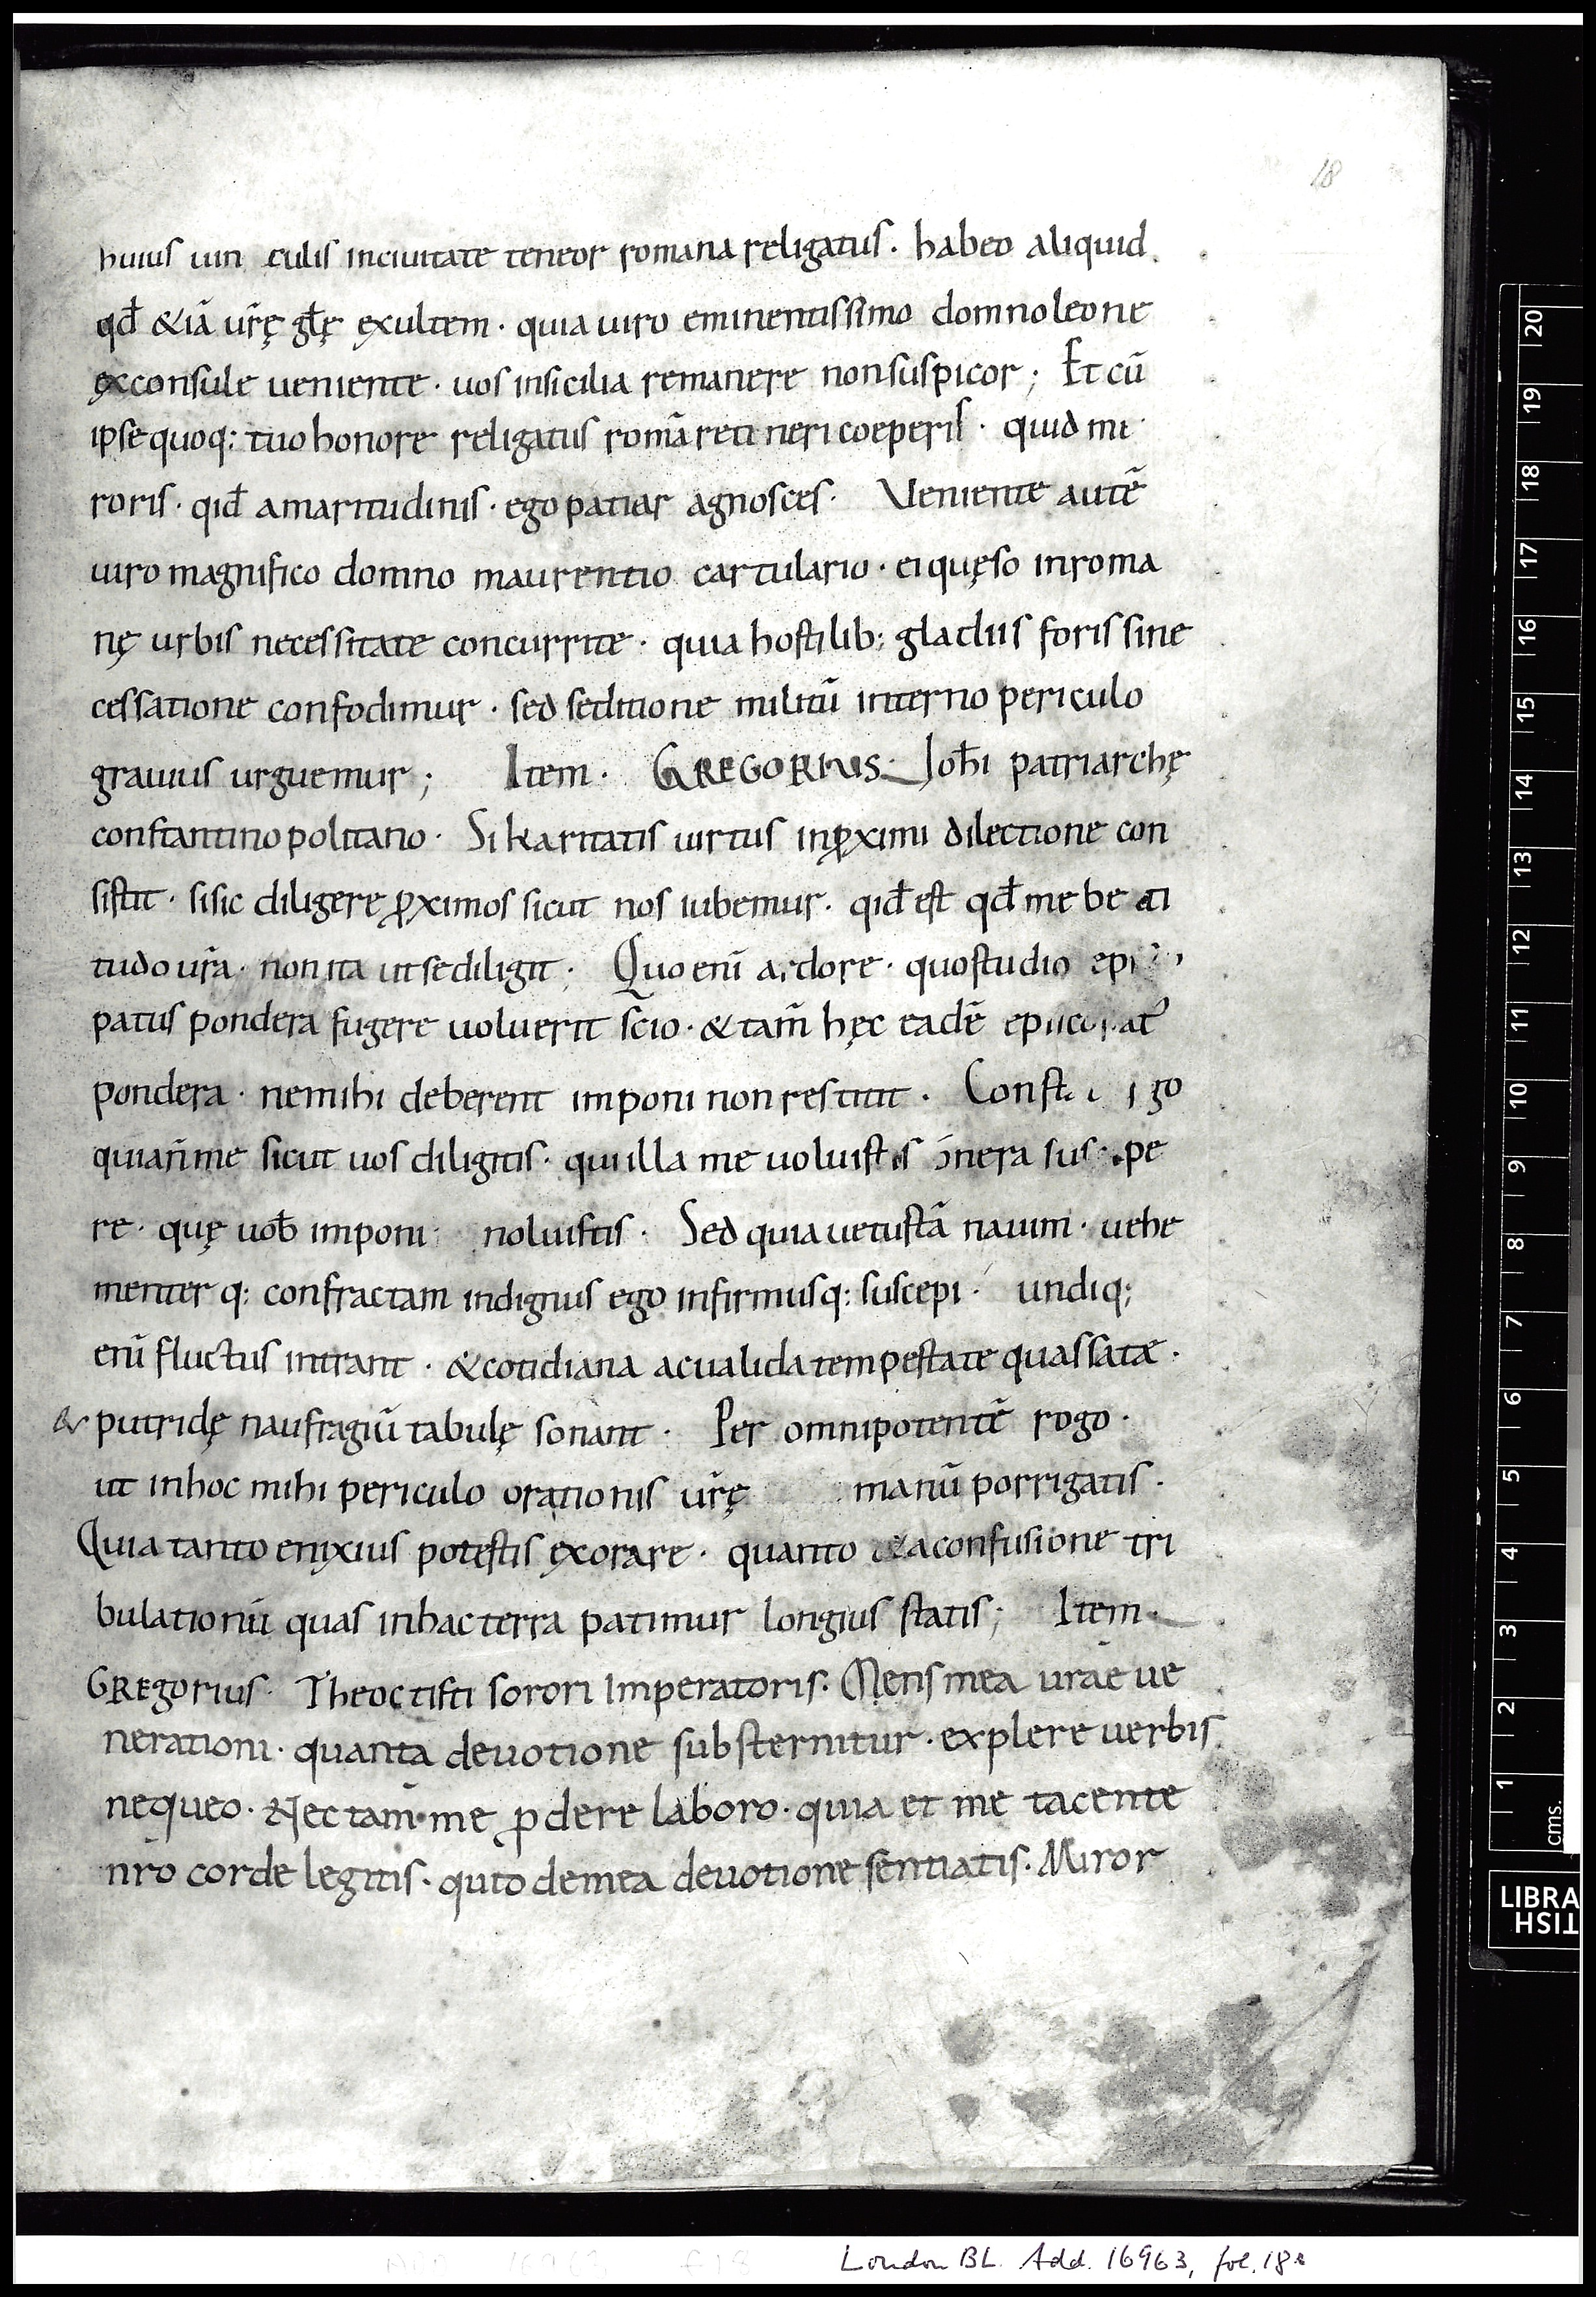 18
huius uin culis inciuitate teneor romana religatus · habeo aliquid.
qđ &iā ur̄ę głę exultem · quia uiro eminentissimo domnoleone
exconsule ueniente · uos insicilia remanere nonsuspicor ; Et cū
ipse quoq: tuo honore religatus romā reti neri coeperis · quid mę
roris · qid̄ amaritudinis · ego patiar agnosces · Veniente autē
uiro magnifico domno maurentio cartulario · ei quęso inroma
nę urbis necessitate concurrite · quia hostilib; gladiis foris sine
cessatione confodimur · sed seditione militū interno periculo
grauius urguemur ; Item · GREGORIUS Joh̄i patriarchę
constantinopolitano · Si karitatis uirtus inꝓximi dilectione con
sistit · sisic diligere ꝓximos sicut nos iubemur · qid̄ est qđ me be ati
tudo ur̄a · non ita utse diligit · Quo enī ardore · quo studio
patus pondera fugere uoluerit scio · & tam̄ hęc eadē
pondera · nemihi deberent imponi non restitit ·
quian̄ me sicut uos diligitis · qui illa me uoluistis onera
re · quę uob̄ imponi noluistis · Sed quia uetustā nauim · uehe
menter q: confractam indignus ego infirmusq: suscepi · undiq;
enī fluctus intrant · & cotidiana acualida tempestate quassatæ ·
& putridę naufragiū tabulę sonant · Per omnipotentē rogo ·
ut inhoc mihi periculo orationis ur̄ę manū porrigatis ·
Quia tanto enixius potestis exorare · quanto &aconfusione tri
bulationū quas inhac terra patimur longius statis ; Item ·
GREgorius · Theoctisti sorori Imperatoris · Mens mea urāe ue
nerationi · quanta deuotione substernitur · explere uerbis
nequeo · Nec tam̄ me ꝓdere laboro · quia et me tacente
nr̄o corde legitis · quto demea deuotione sentiatis · Miror
20
19
18
17
16
15
14
13
12
11
10
9
8
7
6
5
4
3
2
1
cms.
LIBRA
HSIT
London BL. Add. 16963, fol. 18r